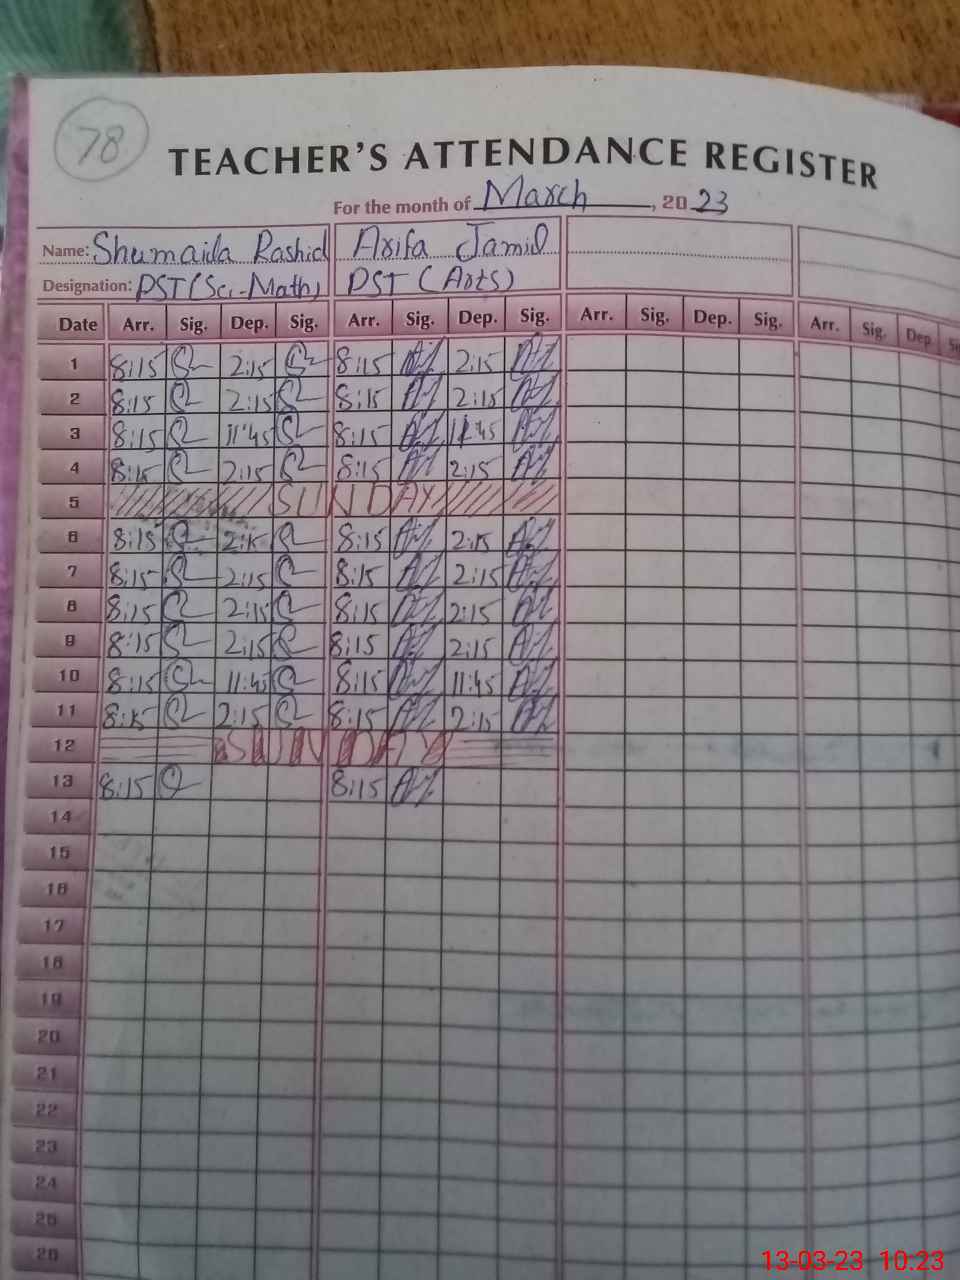 78
TEACHER'S ATTENDANCE REGISTER
For the month of March, 2023
Name: Shumaila Rashid Arifa Jamil
Designation: PST (Sci-Math) PST (Arts)
Date Arr. Sig. Dep. Sig. Arr. Sig. Dep. Sig. Arr. Sig. Dep. Sig. Arr. Sig. Dep
1 8:15 2:15 8:15 2:15
2 8:15 2:15 8:15 2:15
3 8:15 11:45 8:15 11:45
4 8:15 2:15 8:15 2:15
5 SUNDAY
6 8:15 2:15 8:15 2:15
7 8:15 2:15 8:15 2:15
8 8:15 2:15 8:15 2:15
9 8:15 2:15 8:15 2:15
10 8:15 11:45 8:15 11:45
11 8:15 2:15 8:15 2:15
12 SUNDAY
13 8:15 8:15
14
15
16
17
18
19
20
21
22
23
24
25
26
13-03-23 10:23